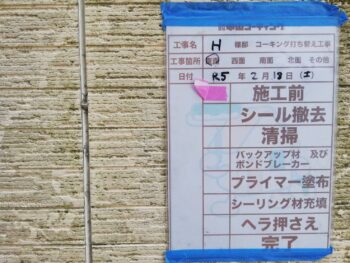 工事名 H 様邸 コーキング打ち替え工事
工事箇所 西面 南面 北面 その他
日付 R5 年 2 月 18 日 (土)
施工前
シール撤去
清掃
バックアップ材 及び
ボンドブレーカー
プライマー塗布
シーリング材充填
ヘラ押さえ
完了